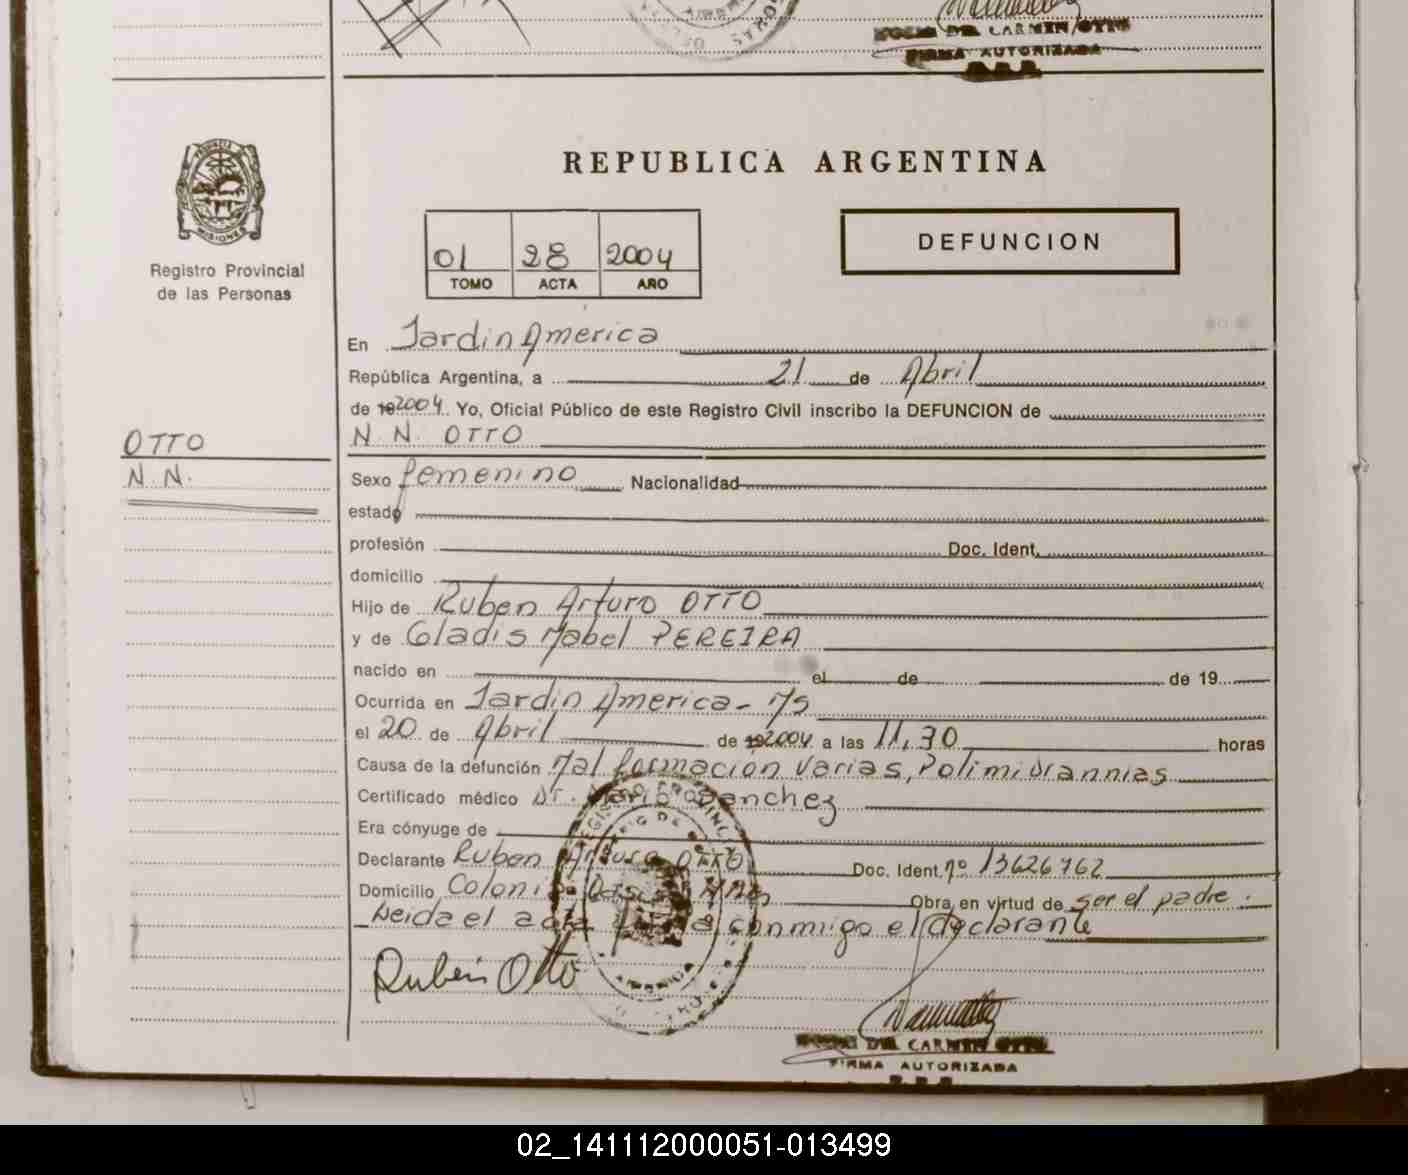 DEL CARMEN OTTO
FIRMA AUTORIZADA
MISIONES
Registro Provincial
de las Personas
REPUBLICA ARGENTINA
01 28 2004
TOMO ACTA AÑO
DEFUNCION
En Jardin America
República Argentina, a 21 de Abril
de 192004. Yo, Oficial Público de este Registro Civil inscribo la DEFUNCION de
OTTO
N.N.
N.N. OTTO
Sexo femenino Nacionalidad
estado
profesión Doc. Ident.
domicilio
Hijo de Ruben Arturo OTTO
y de Gladis Mabel PEREIRA
nacido en el de de 19
Ocurrida en Jardin America - Ms
el 20 de Abril de 192004 a las 11,30 horas
Causa de la defunción Mal formacion varias, Polimidrannias
Certificado médico Dr. Mario Sanchez
Era cónyuge de
Declarante Ruben Arturo OTTO Doc. Ident. nº 13626762
Domicilio Colonia Obra en virtud de ser el padre.
Leida el acta conmigo el declarante
Ruben Otto
DEL CARMEN OTTO
FIRMA AUTORIZADA
02_141112000051-013499